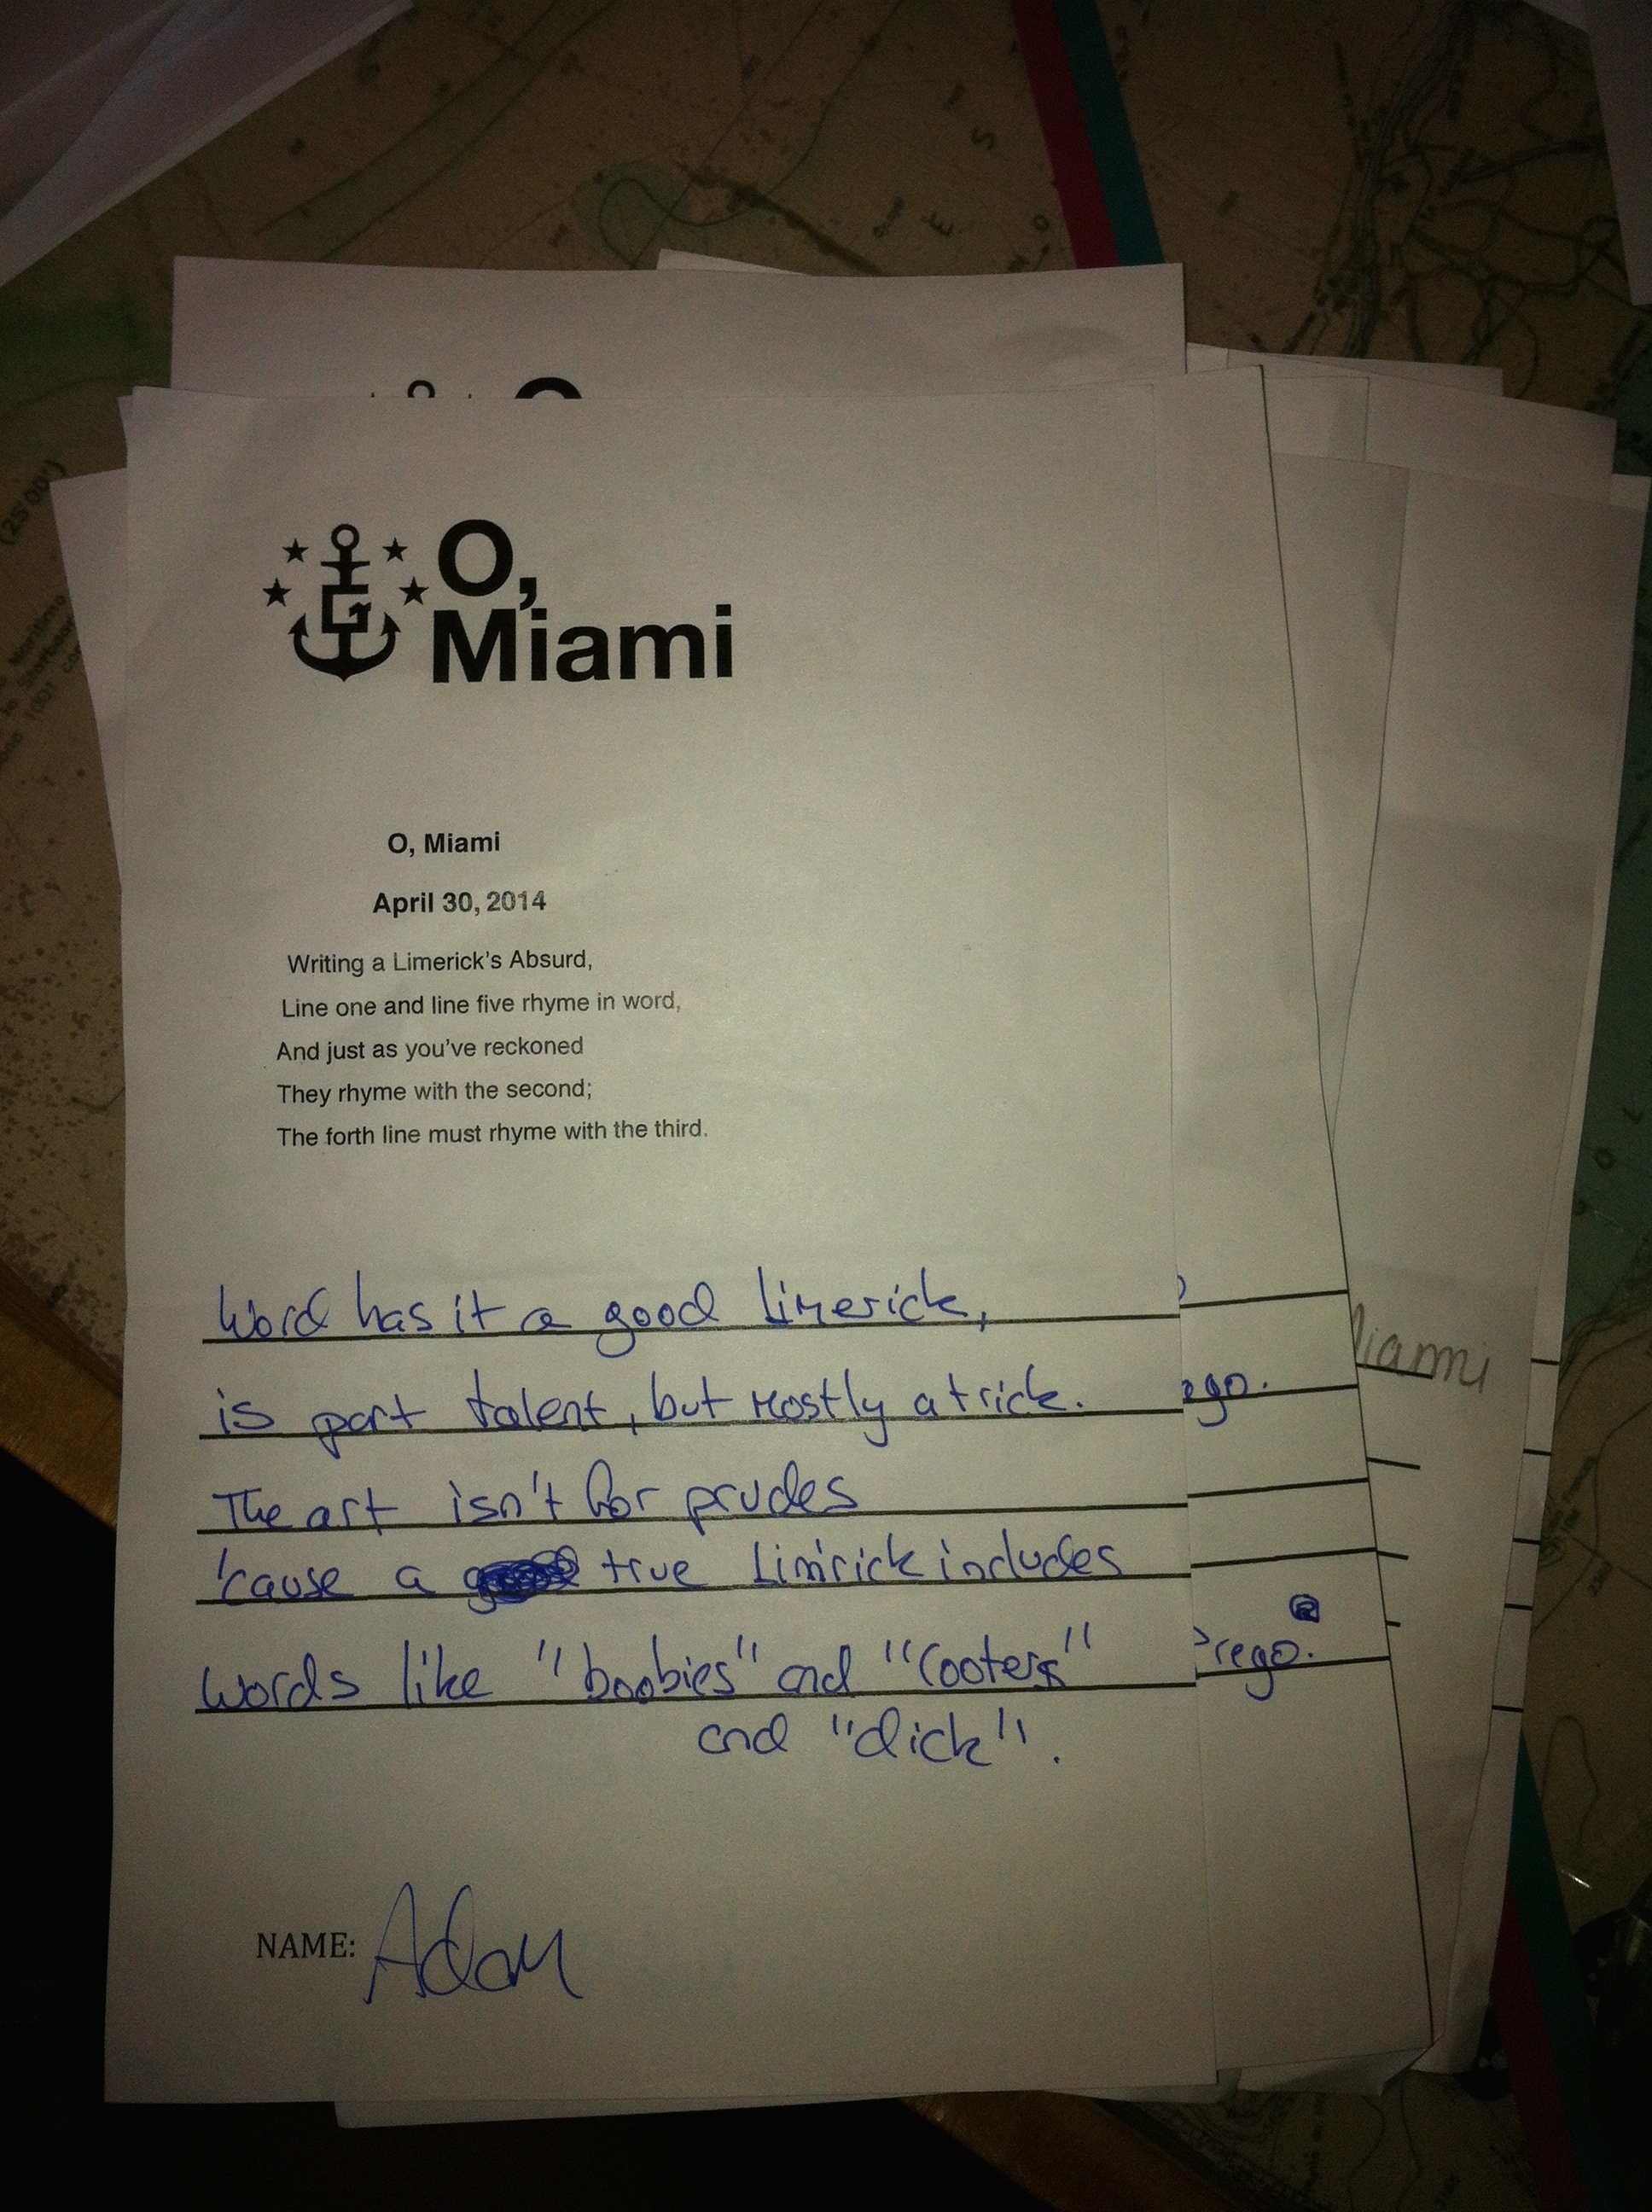 O,
Miami
O, Miami
April 30, 2014
Writing a Limerick's Absurd,
Line one and line five rhyme in word,
And just as you've reckoned
They rhyme with the second;
The forth line must rhyme with the third.
Word has it a good limerick,
is part talent, but mostly a trick.
The art isn't for prudes
'cause a true Lim'rick includes
words like "boobies" and "cooters"
and "dick".
NAME: Adam
ego.
rego.
iami
(25'00")